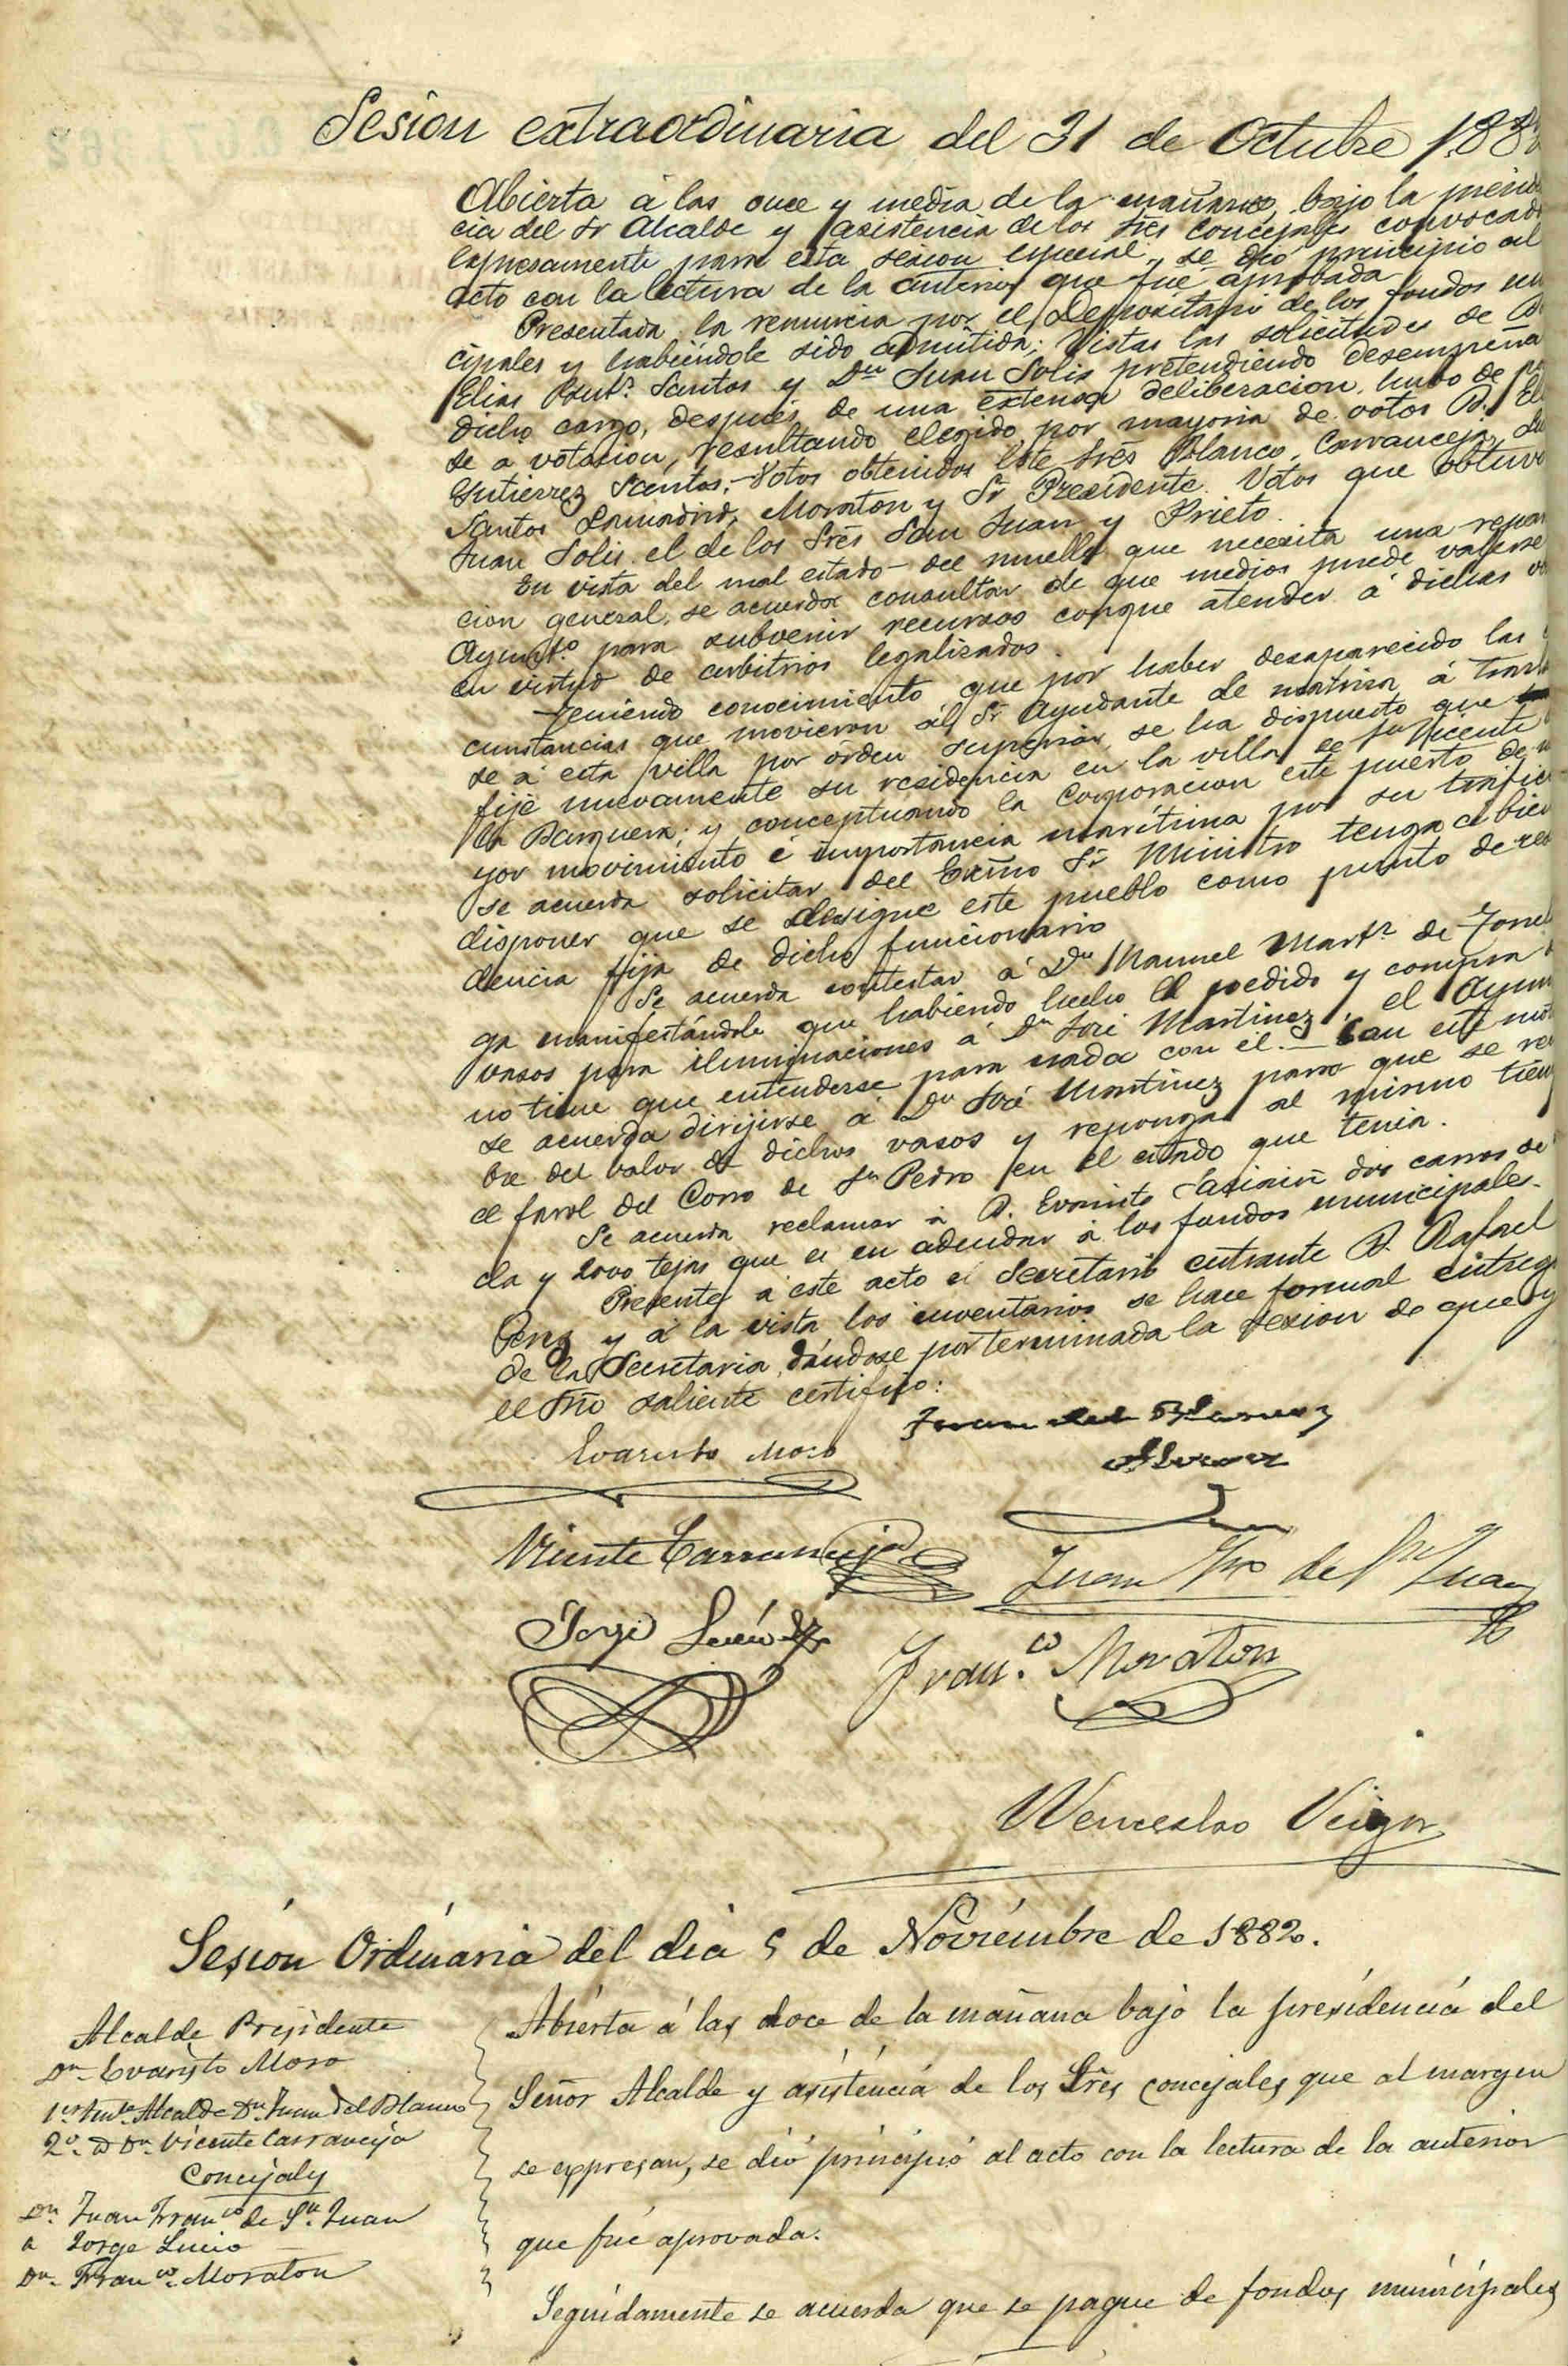 Sesion extraordinaria del 31 de Octubre 188
Abierta á las once y media de la mañana bajo la presid
cia del Sr Alcalde y asistencia de los Sres concejales convocad
expresamente para esta sesion especial, se dió principio al
acto con la lectura de la anterior que fué aprobada
Presentada la renuncia por el Depositario de los fondos mu
cipales y habiéndole sido admitida; Vistas las solicitudes de D
Elias Santos y Dn Juan Solis pretendiendo desempeña
dicho cargo, despues de una extensa deliberacion hubo de
se a votacion, resultando elegido por mayoria de votos D. El
Gutierrez Santos.- Votos obtenidos Este Sres Blanco, Carranceja,
Santos Lamadrid, Moraton y Sr Presidente. Votos que obtuvo
Juan Solis el de los Sres San Juan y Prieto.
En vista del mal estado del muelle que necesita una repar
cion general, se acuerda consultar de que medios puede valerse
Ayuntto para subvenir recursos conque atender á dichas
en virtud de arbitrios legalizados.
Teniendo conocimiento que por haber desaparecido las
cunstancias que movieron al Sr Ayudante de marina á trasl
se á esta villa por órden superior, se ha dispuesto que
fije nuevamente su residencia en la villa de Sn Vicente
la Barquera; y conceptuando la Corporacion este puerto de
yor movimiento é importancia marítima por su trafico
se acuerda solicitar del Exmo Sr Ministro tenga á bien
disponer que se designe este pueblo como punto de res
dencia fija de dicho funcionario
Se acuerda contestar á Dn Manuel Martz de
ga manifestándole que habiendo hecho el pedido y compra
vasos para iluminaciones á Dn José Martinez, el Ayun
no tiene que entenderse para nada con él.- Con este
se acuerda dirijirse á Dn José Martinez para que se
bre del valor de dichos vasos y reponga al mismo tiem
el farol del Corro de Sn Pedro en el estado que tenia.
Se acuerda reclamar á D. Evaristo dos carros de
la y 2000 tejas que es en adeudar á los fondos municipales.
Presente á este acto el Secretario entrante D. Rafael
Perez y á la vista los inventarios se hace formal entrega
de la Secretaria, dándose por terminada la sesion de que yo
el Srio saliente certifico:
Evaristo Moro
Juan del Blanco
Vicente Carranceja
Juan Fco de Sn Juan
Jorge Lucio
Franco Moraton
Wenceslao Veiga
Sesion Ordinaria del dia 5 de Noviembre de 1882.
Alcalde Presidente
Dn Evaristo Moro
1er Tente Alcalde Dn Juan del Blanco
2º id Dn Vicente Carranceja
Concejales
Dn Juan Franco de Sn Juan
" Jorge Lucio
Dn Franco Moraton
Abierta á las doce de la mañana bajo la presidencia del
Señor Alcalde y asistencia de los Sres concejales que al margen
se expresan, se dió principio al acto con la lectura de la anterior
que fué aprovada.
Seguidamente se acuerda que se pague de fondos municipales